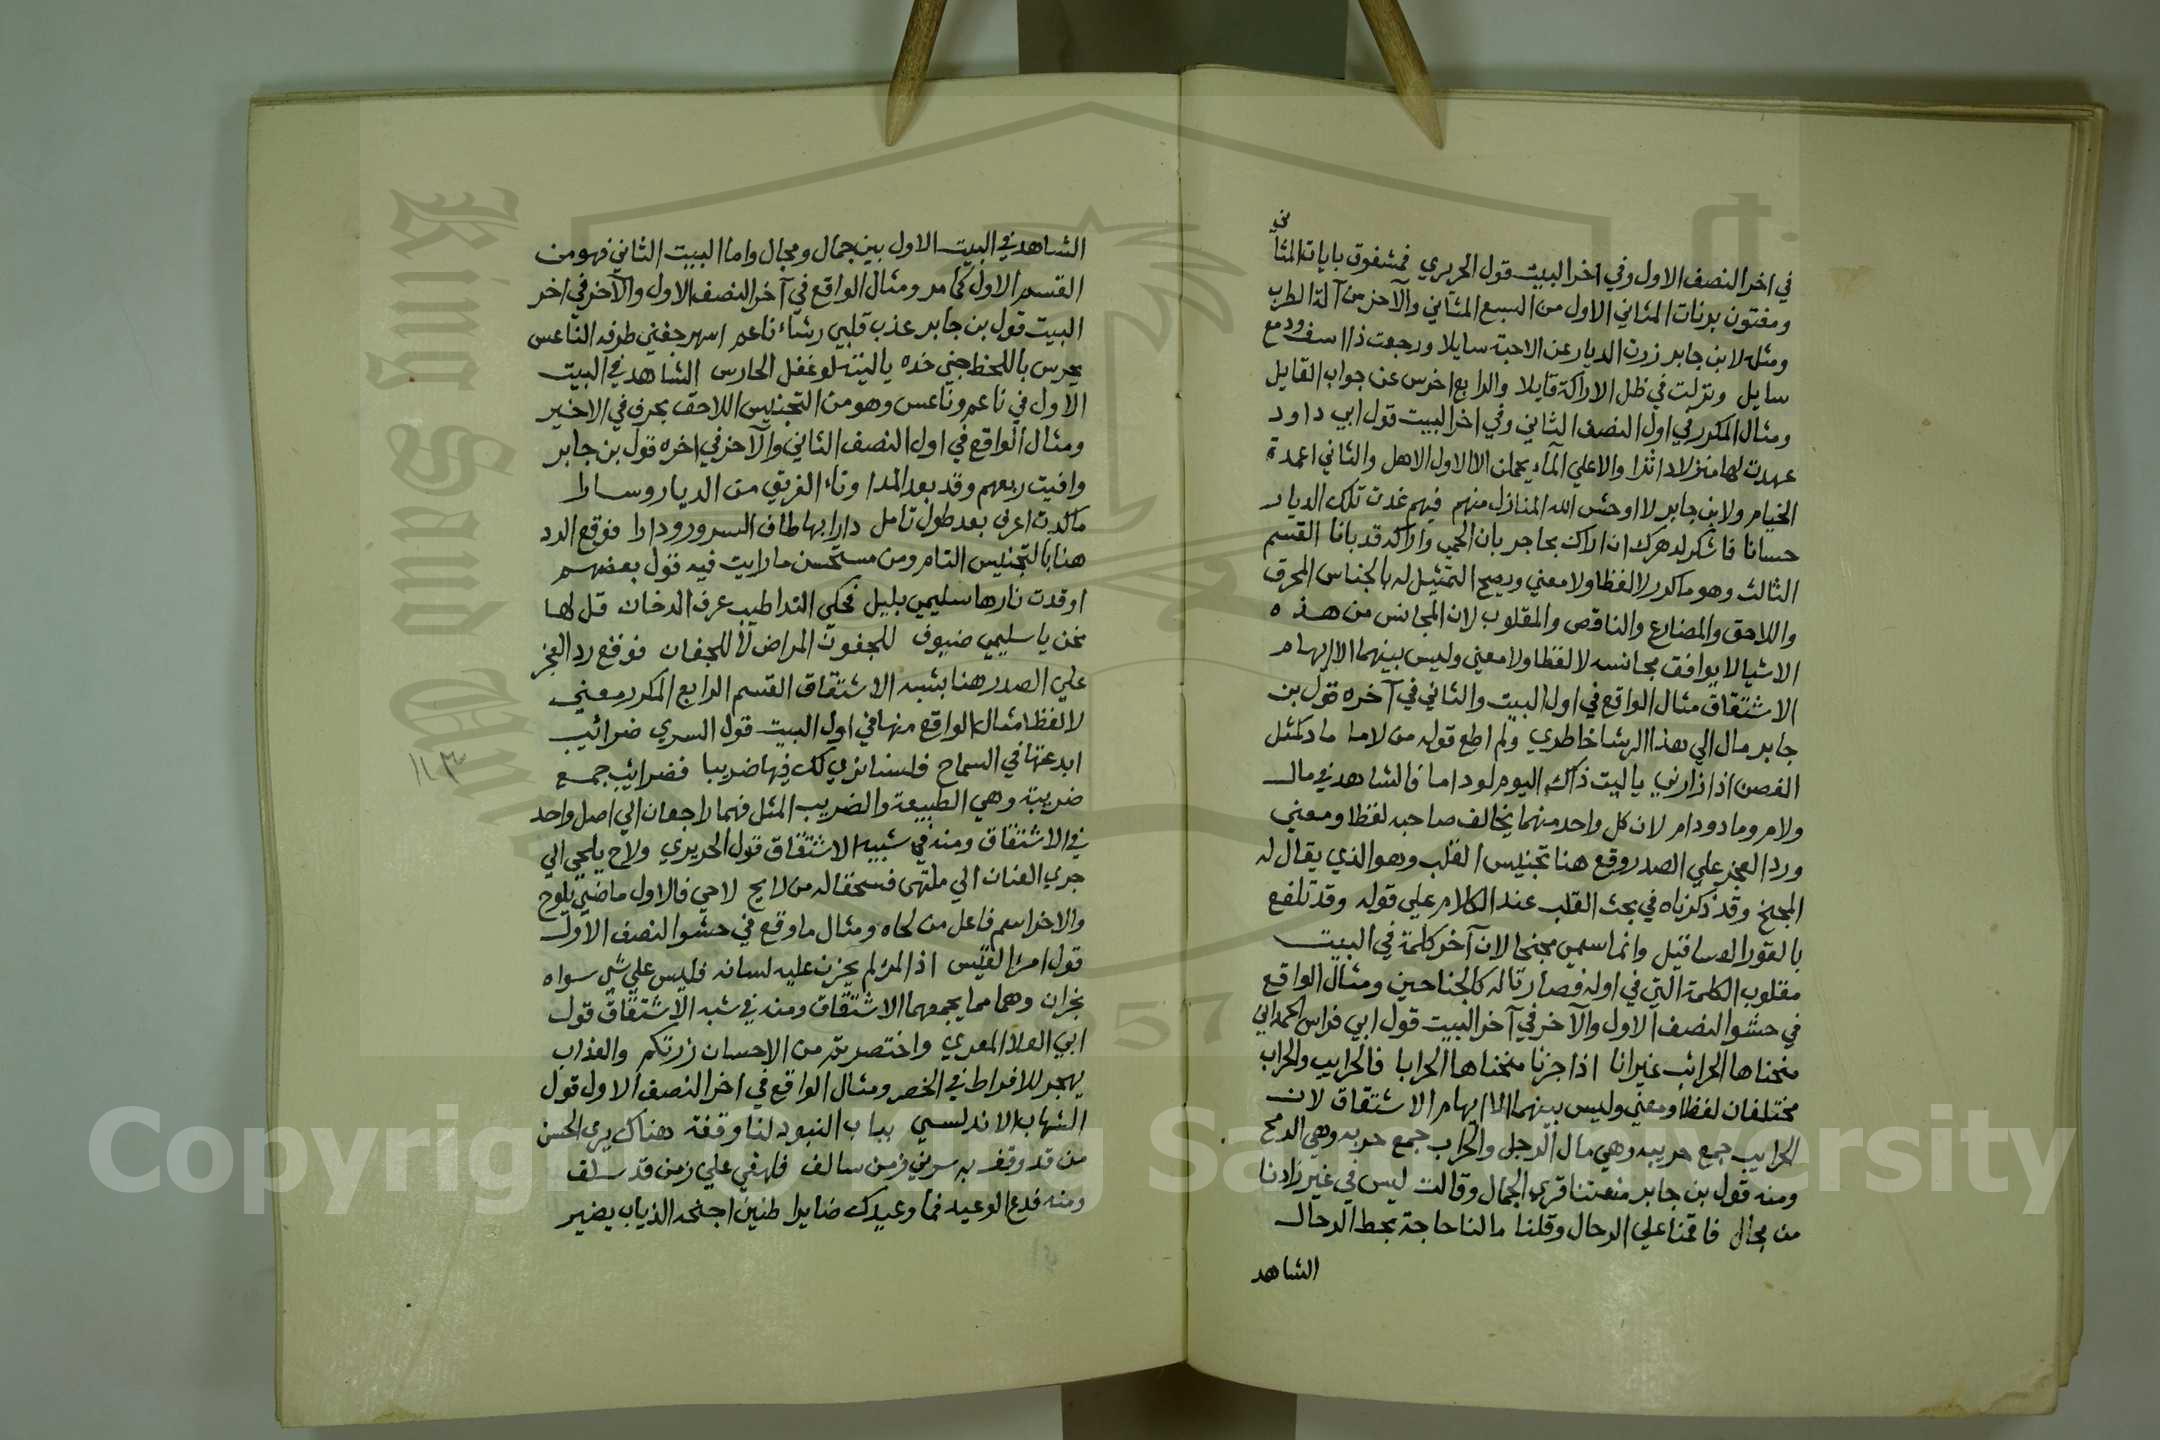 في اخر النصف الاول وفي اخر البيت قول الحريري فمشغوق بايات المثاني
ومفتون برنات المثاني الاول من السبع المثاني والآخر من آلة الطرب
ومثله لابن جابر زرت الديار عن الاحبة سايلا ورجعت ذا اسف ودمع
سايل ونزلت في ظل الاراكة قايلا والرابع اخرس عن جواب القايل
ومثال المكرر في اول النصف الثاني وفي اخر البيت قول ابي داود
عهدت لها منزلا داثرا والا علي المآء يحملن الا الاول الاهل والثاني اعمدة
الخيام ولابن جابر لا اوحش الله المنازل منهم فبهم غدت تلك الديار
حسانا فاشكر لدهرك ان اراك بحاجر بان الحمي واراكه قد بانا القسم
الثالث وهو ما كرر لا لفظا ولا معني ويصح التمثيل له بالجناس المحرف
واللاحق والمضارع والناقص والمقلوب لان المجانس من هذه
الاشيا لا يوافق مجانسه لا لفظا ولا معني وليس بينهما الا ايهام
الاشتقاق مثال الواقع في اول البيت والثاني في آخره قول بن
جابر مال الي هذا الرشا خاطري ولم اطع قوله من لاما ماد كمثل
الغصن اذا زارني ياليت ذاك اليوم لو داما فالشاهد في مال
ولام وماد ودام لان كل واحد منهما يخالف صاحبه لفظا ومعني
ورد العجز علي الصدر وقع هنا تجنيس القلب وهو الذي يقال له
المجنح وقد ذكرناه في بحث القلب عند الكلام علي قوله وقد تلفع
بالقور العساقيل وانما سمي مجنحا لان آخر كلمة في البيت
مقلوب الكلمة التي في اوله فصارتا له كالجناحين ومثال الواقع
في حشو النصف الاول والآخر في آخر البيت قول ابي فراس الحمداني
منحناها الحرائب غير انا اذا جزنا منحناها الحرابا فالحرايب والحراب
مختلفان لفظا ومعني وليس بينهما الا ايهام الاشتقاق لان
الحرايب جمع حريبه وهي مال الرجل والحراب جمع حربه وهي الرمح
ومنه قول بن جابر منعتنا قري الجمال وقالت ليس في غير زادنا
من مجال فاقمنا علي الرحال وقلنا مالنا حاجة بحط الرحال
الشاهد
الشاهد في البيت الاول بين جمال ومجال واما البيت الثاني فهو من
القسم الاول كما مر ومثال الواقع في آخر النصف الاول والآخر في اخر
البيت قول بن جابر عذب قلبي رشاء ناعم اسهر جفني طرفه الناعس
يحرس باللحظ جني خده ياليته لو غفل الحارس الشاهد في البيت
الاول في ناعم وناعس وهو من التجنيس اللاحق بحرف في الاخير
ومثال الواقع في اول النصف الثاني والآخر في اخره قول بن جابر
وافيت ربعهم وقد بعد المدا وناء الفريق من الديار وسارا
ماكدت اعرف بعد طول تامل دارا بها طاف السرور ودارا فوقع الرد
هنا بالتجنيس التام ومن مستحسن ما رايت فيه قول بعضهم
اوقدت نارها سليمي بليل فحكي الندا طيب عرف الدخان قل لها
نحن يا سليمي ضيوف للجفون المراض لا للجفان فوقع رد العجز
علي الصدر هنا بشبه الاشتقاق القسم الرابع المكرر معني
لا لفظا مثال الواقع منها في اول البيت قول السري ضرائب
ابدعتها في السماح فلسنا نري لك فيها ضريبا فضرائب جمع
ضريبة وهي الطبيعة والضريب المثل فهما راجعان الي اصل واحد
في الاشتقاق ومنه في شبيه الاشتقاق قول الحريري ولاح يلحي الي
جري العنان الي ملتهى فسحقا له من لايح لاحي فالاول ماضي يلوح
والاخر اسم فاعل من لحاه ومثال ما وقع في حشو النصف الاول
قول امرئ القيس اذا المرء لم يخزن عليه لسانه فليس علي شي سواه
بخزان وهما مما يجمعهما الاشتقاق ومنه في شبه الاشتقاق قول
ابي العلا المعري واختصرتم من الاحسان زرتكم والعذاب
يهجر للافراط في الخصر ومثال الواقع في اخر النصف الاول قول
الشهاب الاندلسي بباب النبود لنا وقفة هناك يري الحسن
من قد وقف به سرني زمن سالف فلهفي علي زمن قد سلف
ومنه فدع الوعيد فما وعيدك ضايرا طنين اجنحه الذباب يضير
King Saud University
1957
Copyright © King Saud University